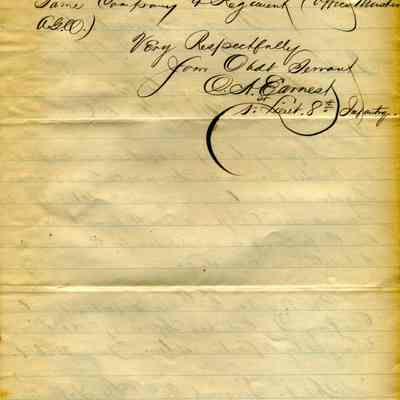 Same Company & Regiment (Office Muster
A.G.O.)
Very Respectfully
Your Obdt Servant
C. A. Earnest
1st Lieut. 8th Infantry.